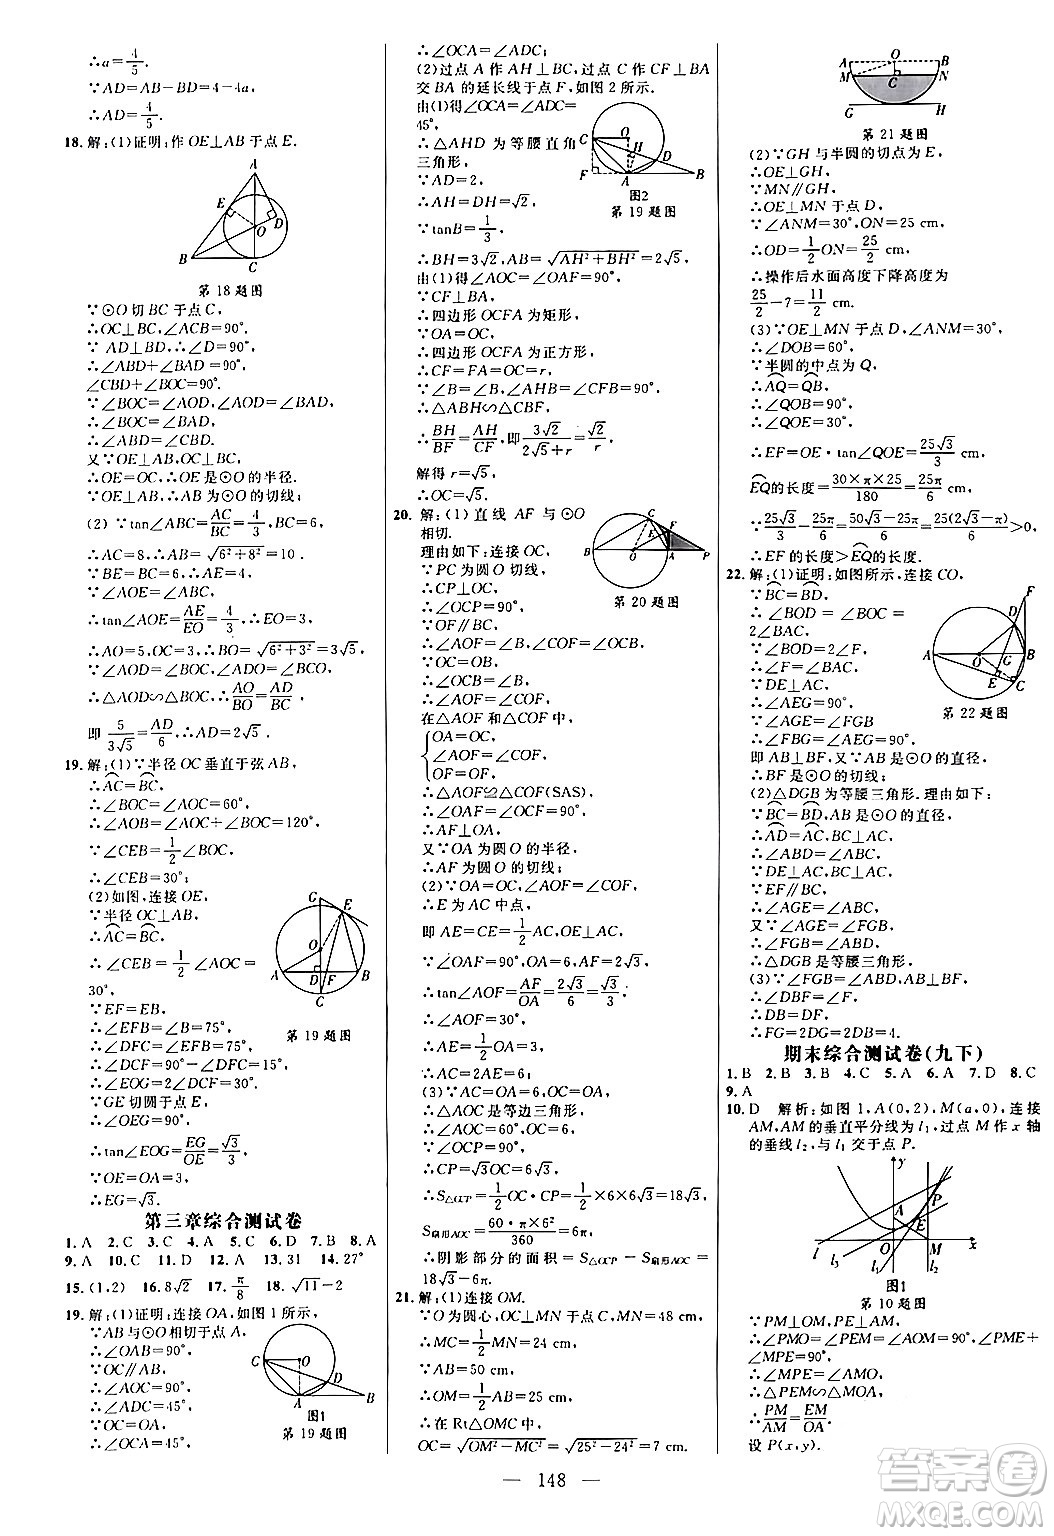 ∴a=4/5.
∵AD=AB-BD=4-4a,
∴AD=4/5.
18.解:(1)证明:作OE⊥AB于点E.
A
E
D
O
B
C
第18题图
∵⊙O切BC于点C,
∴OC⊥BC,∠ACB=90°.
∵AD⊥BD,∴∠D=90°.
∴∠ABD+∠BAD=90°,
∠CBD+∠BOC=90°.
∵∠BOC=∠AOD,∠AOD=∠BAD,
∴∠BOC=∠BAD.
∴∠ABD=∠CBD.
又∵OE⊥AB,OC⊥BC,
∴OE=OC=OE是⊙O的半径.
∵OE⊥AB,∴AB是⊙O的切线;
(2)∵tan∠ABC=AC/BC=4/3,BC=6,
∴AC=8.∴AB=√(6²+8²)=10.
∵BE=BC=6,∴AE=4.
∵∠AOE=∠ABC,
∴tan∠AOE=AE/EO=4/3.∴EO=3.
∴AO=5,OC=3,∴BO=√(6²+3²)=3√5.
∵∠AOD=∠BOC,∠ADO=∠BCO,
∴△AOD∽△BOC.∴AO/BO=AD/BC.
即5/(3√5)=AD/6,∴AD=2√5.
19.解:(1)∵半径OC垂直于弦AB,
∴AC=BC.
∴∠BOC=∠AOC=60°,
∴∠AOB=∠AOC+∠BOC=120°.
∵∠CEB=1/2∠BOC,
∴∠CEB=30°;
(2)如图,连接OE,
∵半径OC⊥AB,
∴AC=BC.
∴∠CEB=1/2∠AOC=
30°.
∵EF=EB,
∴∠EFB=∠B=75°,
∴∠DFC=∠EFB=75°,
∴∠DCF=90°-∠DFC=15°.
∵OE=OC,∴∠C=∠OEC=15°.
∴∠EOG=∠C+∠OEC=30°.
∵GE切圆于点E,
∴∠OEG=90°.
∴tan∠EOG=EG/OE=√3/3,
∵OE=OA=3,
∴EG=√3.
G
E
O
A
D
F
B
C
第19题图
第三章综合测试卷
1.A 2.C 3.C 4.A 5.C 6.D 7.B 8.A
9.A 10.C 11.D 12.A 13.31 14.27°
15.(1,2) 16.8√2 17.π/8 18.√11-2
19.解:(1)证明:连接OA,如图1所示,
∵AB与⊙O相切于点A,
∴∠OAB=90°.
∵OC∥AB,
∴∠AOC=90°,
∴∠ADC=45°.
∵OC=OA,
∴∠OCA=45°,
C
O
D
A
B
图1
第19题图
∴∠OCA=∠ADC;
(2)过点A作AH⊥BC,过点C作CF⊥BA
交BA的延长线于点F,如图2所示.
由(1)得∠OCA=∠ADC=
45°.
∴△AHD为等腰直角
三角形,
∵AD=2,
∴AH=DH=√2.
∵tanB=1/3,
∴BH=3√2,AB=√(AH²+BH²)=2√5.
由(1)得∠AOC=∠OAF=90°,
∵CF⊥BA,
∴四边形OCFA为矩形.
∵OA=OC,
∴四边形OCFA为正方形.
∴CF=FA=OC=r,
∵∠B=∠B,∠AHB=∠CFB=90°,
∴△ABH∽△CBF,
∴BH/BF=AH/CF,即3√2/(2√5+r)=√2/r.
解得r=√5,
∴OC=√5.
C
O
H
D
F
A
B
图2
第19题图
20.解:(1)直线AF与⊙O
相切.
理由如下:连接OC,
∵PC为圆O切线,
∴CP⊥OC,
∴∠OCP=90°.
∵OF∥BC,
∴∠AOF=∠B,∠COF=∠OCB,
∵OC=OB,
∴∠OCB=∠B,
∴∠AOF=∠COF,
在△AOF和△COF中,
OA=OC,
∠AOF=∠COF,
OF=OF,
∴△AOF≌△COF(SAS)
∴∠OAF=∠OCF=90°,
∴AF⊥OA,
又∵OA为圆O的半径,
∴AF为圆O的切线;
(2)∵∠AOF=∠COF,OA=OC,
∴E为AC中点,
即AE=CE=1/2AC,OE⊥AC,
∵∠OAF=90°,OA=6,AF=2√3,
∴tan∠AOF=AF/OA=2√3/6=√3/3,
∴∠AOF=30°,
∴AE=1/2OA=3,
∴AC=2AE=6;
(3)∵AC=OA=6,OC=OA=6,
∴△AOC是等边三角形,
∴∠AOC=60°,OC=6,
∵∠OCP=90°,
∴CP=√3OC=6√3,
∴S△OCP=1/2OC·CP=1/2×6×6√3=18√3,
S扇形AOC=60·π×6²/360=6π,
∴阴影部分的面积=S△OCP-S扇形AOC=
18√3-6π.
C
F
E
B
O
A
P
第20题图
21.解:(1)连接OM.
∵O为圆心,OC⊥MN于点C,MN=48 cm,
∴MC=1/2MN=24 cm,
∵AB=50 cm,
∴OM=1/2AB=25 cm,
∴在Rt△OMC中,
OC=√(OM²-MC²)=√(25²-24²)=7 cm.
A
O
B
M
C
N
G
H
第21题图
(2)∵GH与半圆的切点为E,
∴OE⊥GH,
∵MN∥GH,
∴OE⊥MN于点D,
∵∠ANM=30°,ON=25 cm,
∴OD=1/2ON=25/2 cm,
∴操作后水面高度下降高度为
25/2-7=11/2 cm.
(3)∵OE⊥MN于点D,∠ANM=30°,
∴∠DOB=60°.
∵半圆的中点为Q,
∴AQ=QB,
∴∠QOB=90°,
∴∠QOE=30°,
∴EF=OE·tan∠QOE=25√3/3 cm,
EQ的长度=30×π×25/180=25π/6 cm,
∵25√3/3-25π/6=(50√3-25π)/6=25(2√3-π)/6>0,
∴EF的长度>EQ的长度.
22.解:(1)证明:如图所示,连接CO,
∵BC=BD,
∴∠BOD=∠BOC=
2∠BAC,
∵∠BOD=2∠F,
∴∠F=∠BAC,
∵DE⊥AC,
∴∠AEG=90°,
∵∠AGE=∠FGB
∴∠FBG=∠AEG=90°,
即AB⊥BF,又∵AB是⊙O的直径,
∴BF是⊙O的切线;
(2)△DGB为等腰三角形.理由如下:
∵BC=BD,AB是⊙O的直径,
∴AD=AC,BC⊥AC,
∴∠ABD=∠ABC,
∵DE⊥AC,
∴EF∥BC,
∴∠AGE=∠ABC,
又∵∠AGE=∠FGB,
∴∠FGB=∠ABD,
∴△DGB是等腰三角形.
(3)∵∠FGB=∠ABD,AB⊥BF,
∴∠DBF=∠F,
∴DB=DF,
∴FG=2DG=2DB=4.
F
D
A
O
G
B
E
C
第22题图
期末综合测试卷(九下)
1.B 2.B 3.B 4.C 5.A 6.A 7.D 8.C
9.A
10.D 解析:如图1,A(0,2),M(a,0),连接
AM,AM的垂直平分线为l₁,过点M作x轴
的垂线l₂,与l₁交于点P.
y
P
A
E
l
O
M
x
l₁
l₂
图1
第10题图
∵PM⊥OM,PE⊥AM,
∴∠PMO=∠PEM=∠AOM=90°,∠PME+
∠MPE=90°.
∴∠MPE=∠AMO,
∴△PEM∽△MOA,
∴PM/AM=EM/OA.
设P(x,y).
148
答案圈
MXQE.COM